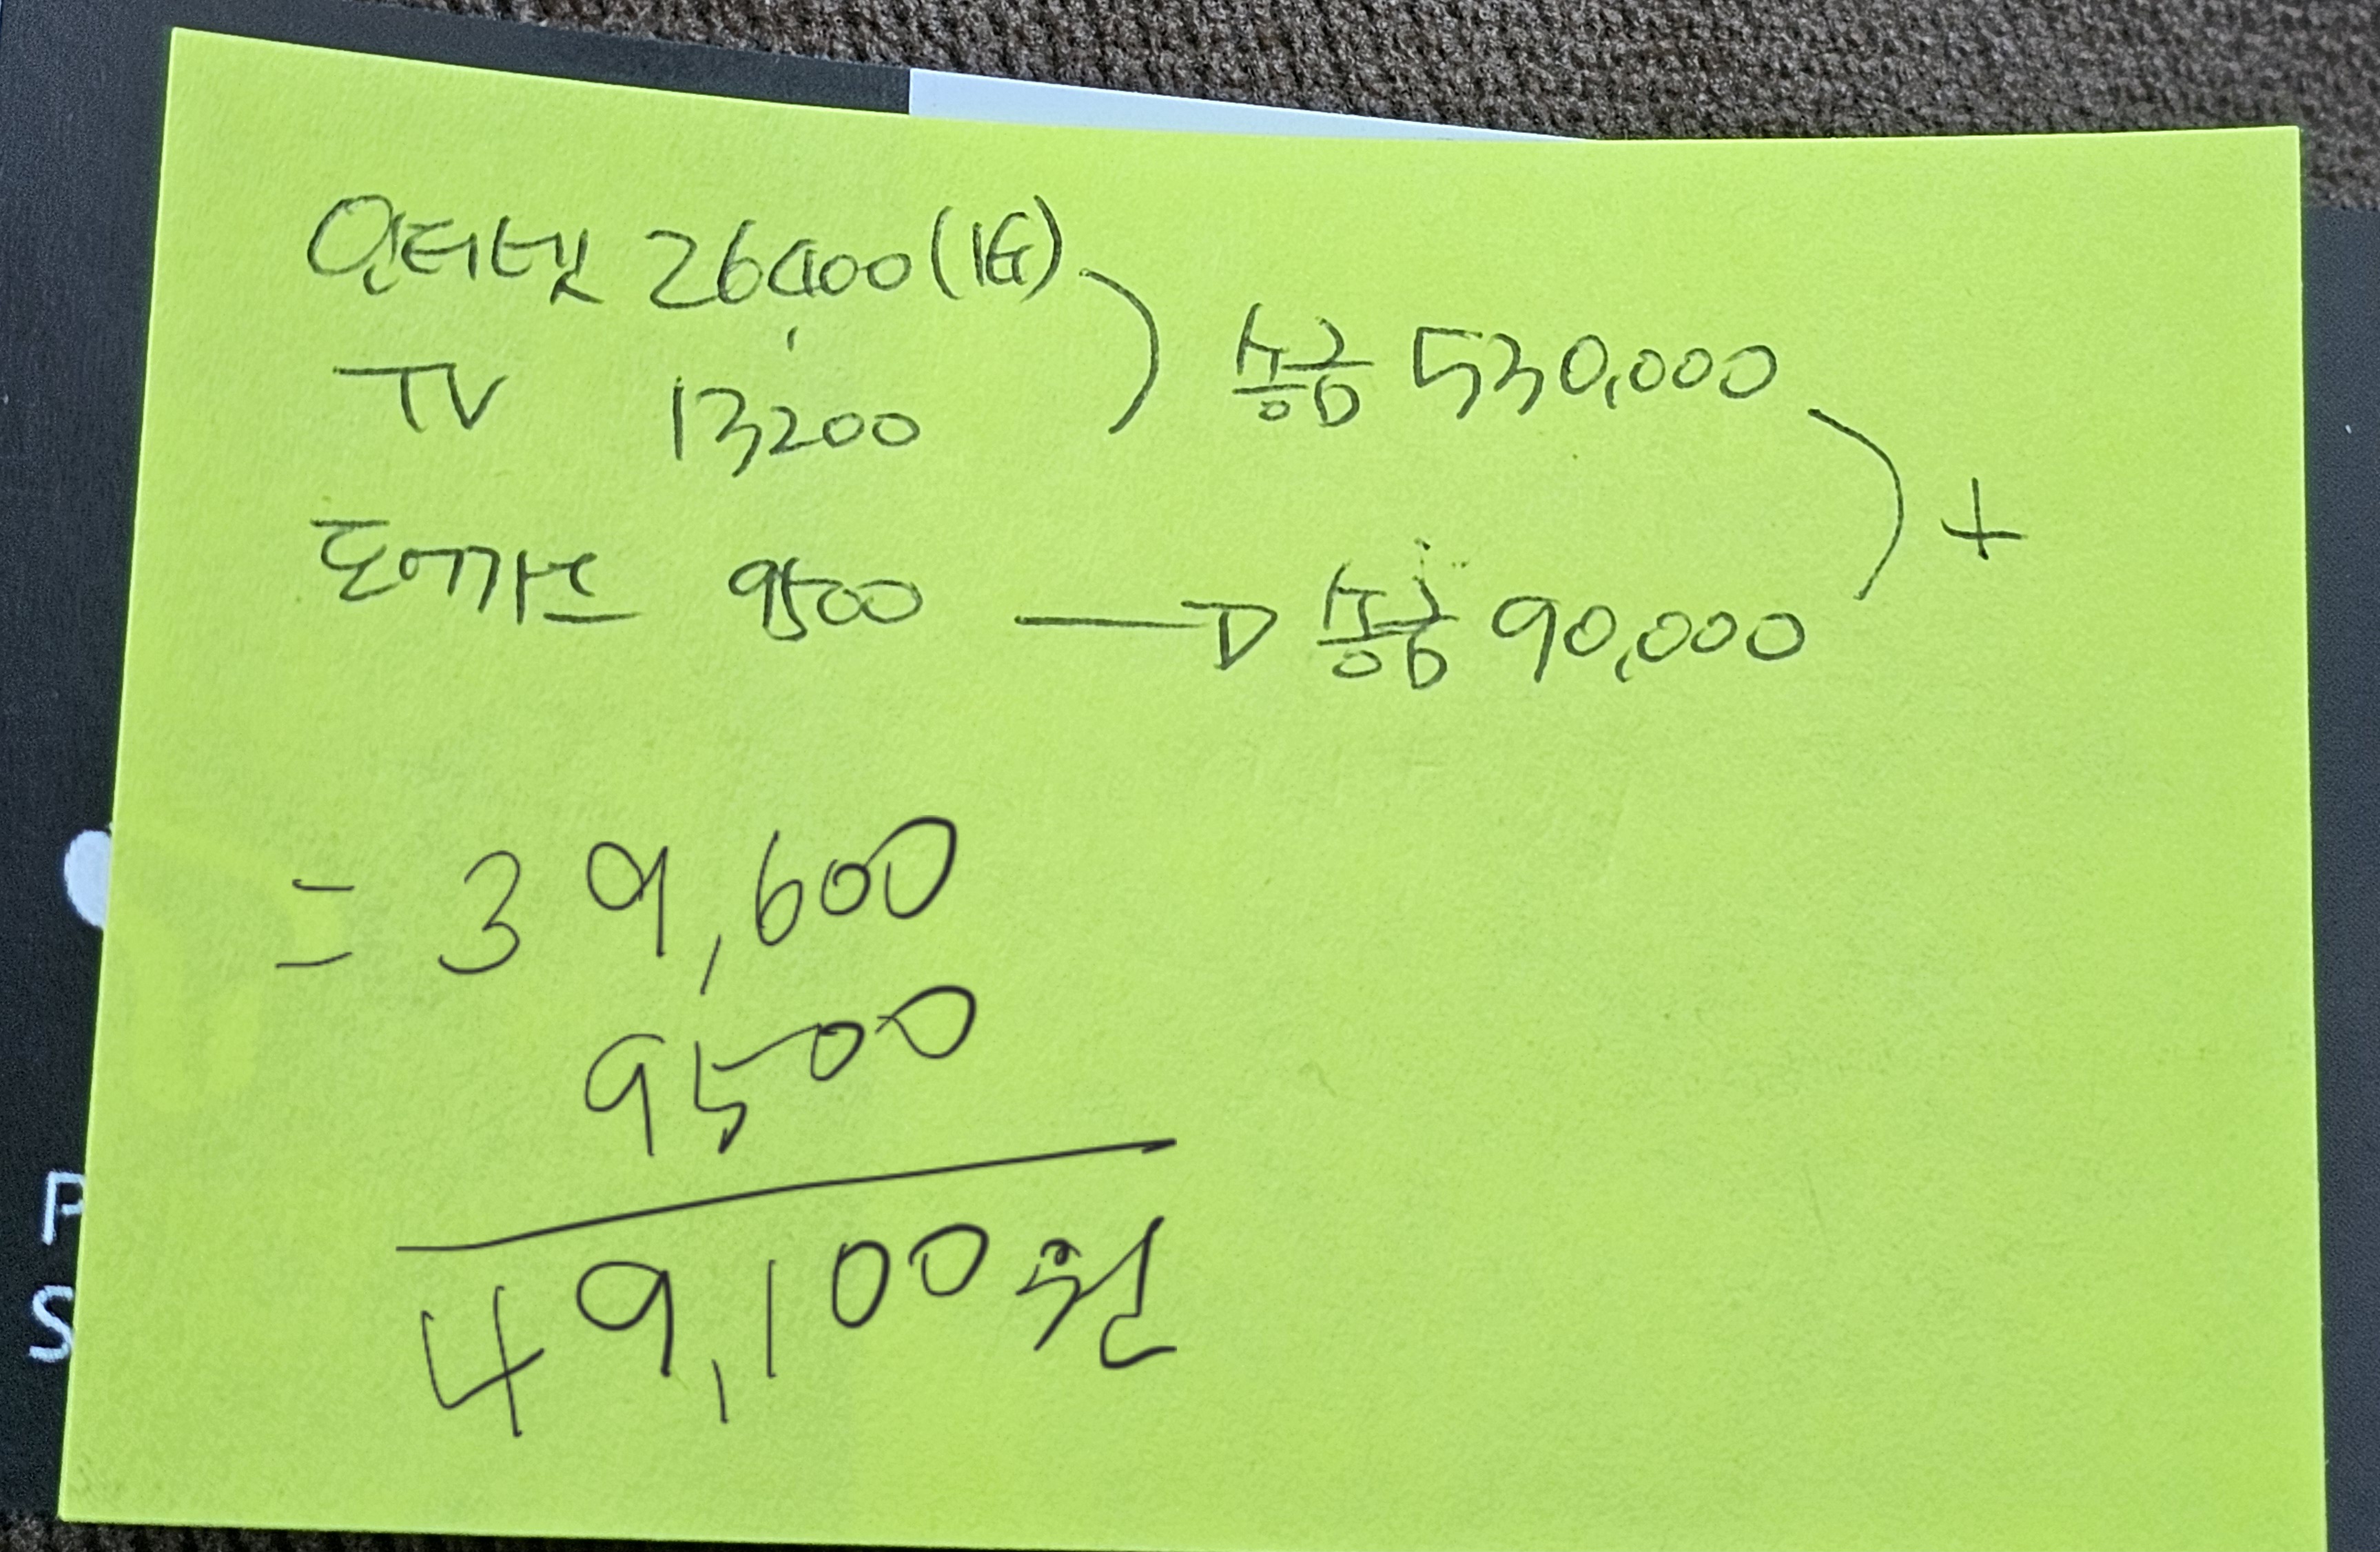 인터넷 26,400(1G)
TV 13200
송금 530,000
도어가드 9500 → 송금 90,000
+
= 39,600
9500
49,100원
P
S